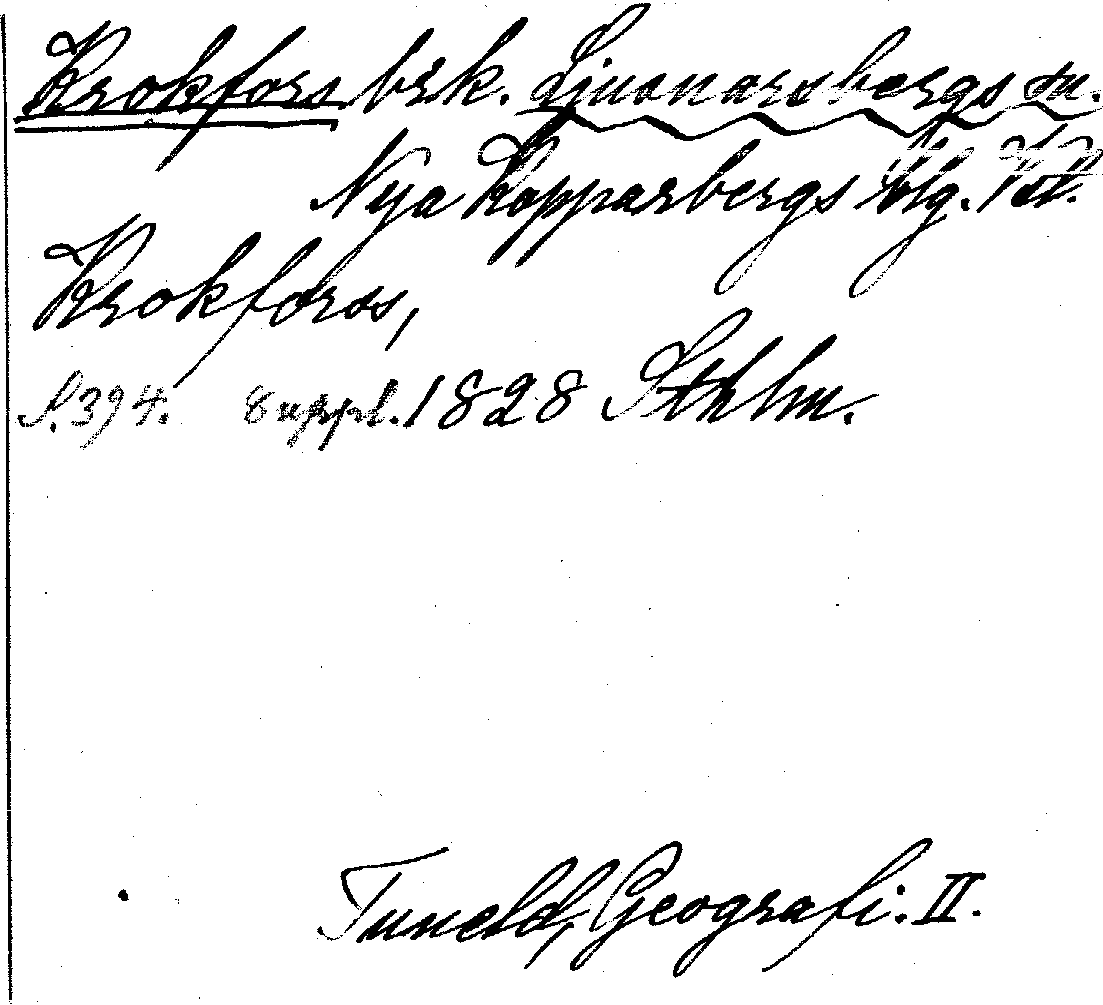 Krokfors brk. Ljusnarsbergs sn.
Nya Kopparbergs blg.
Krokforss,
S. 394. Suppl. 1828 Sthlm.
Tuneld, Geografi. II.